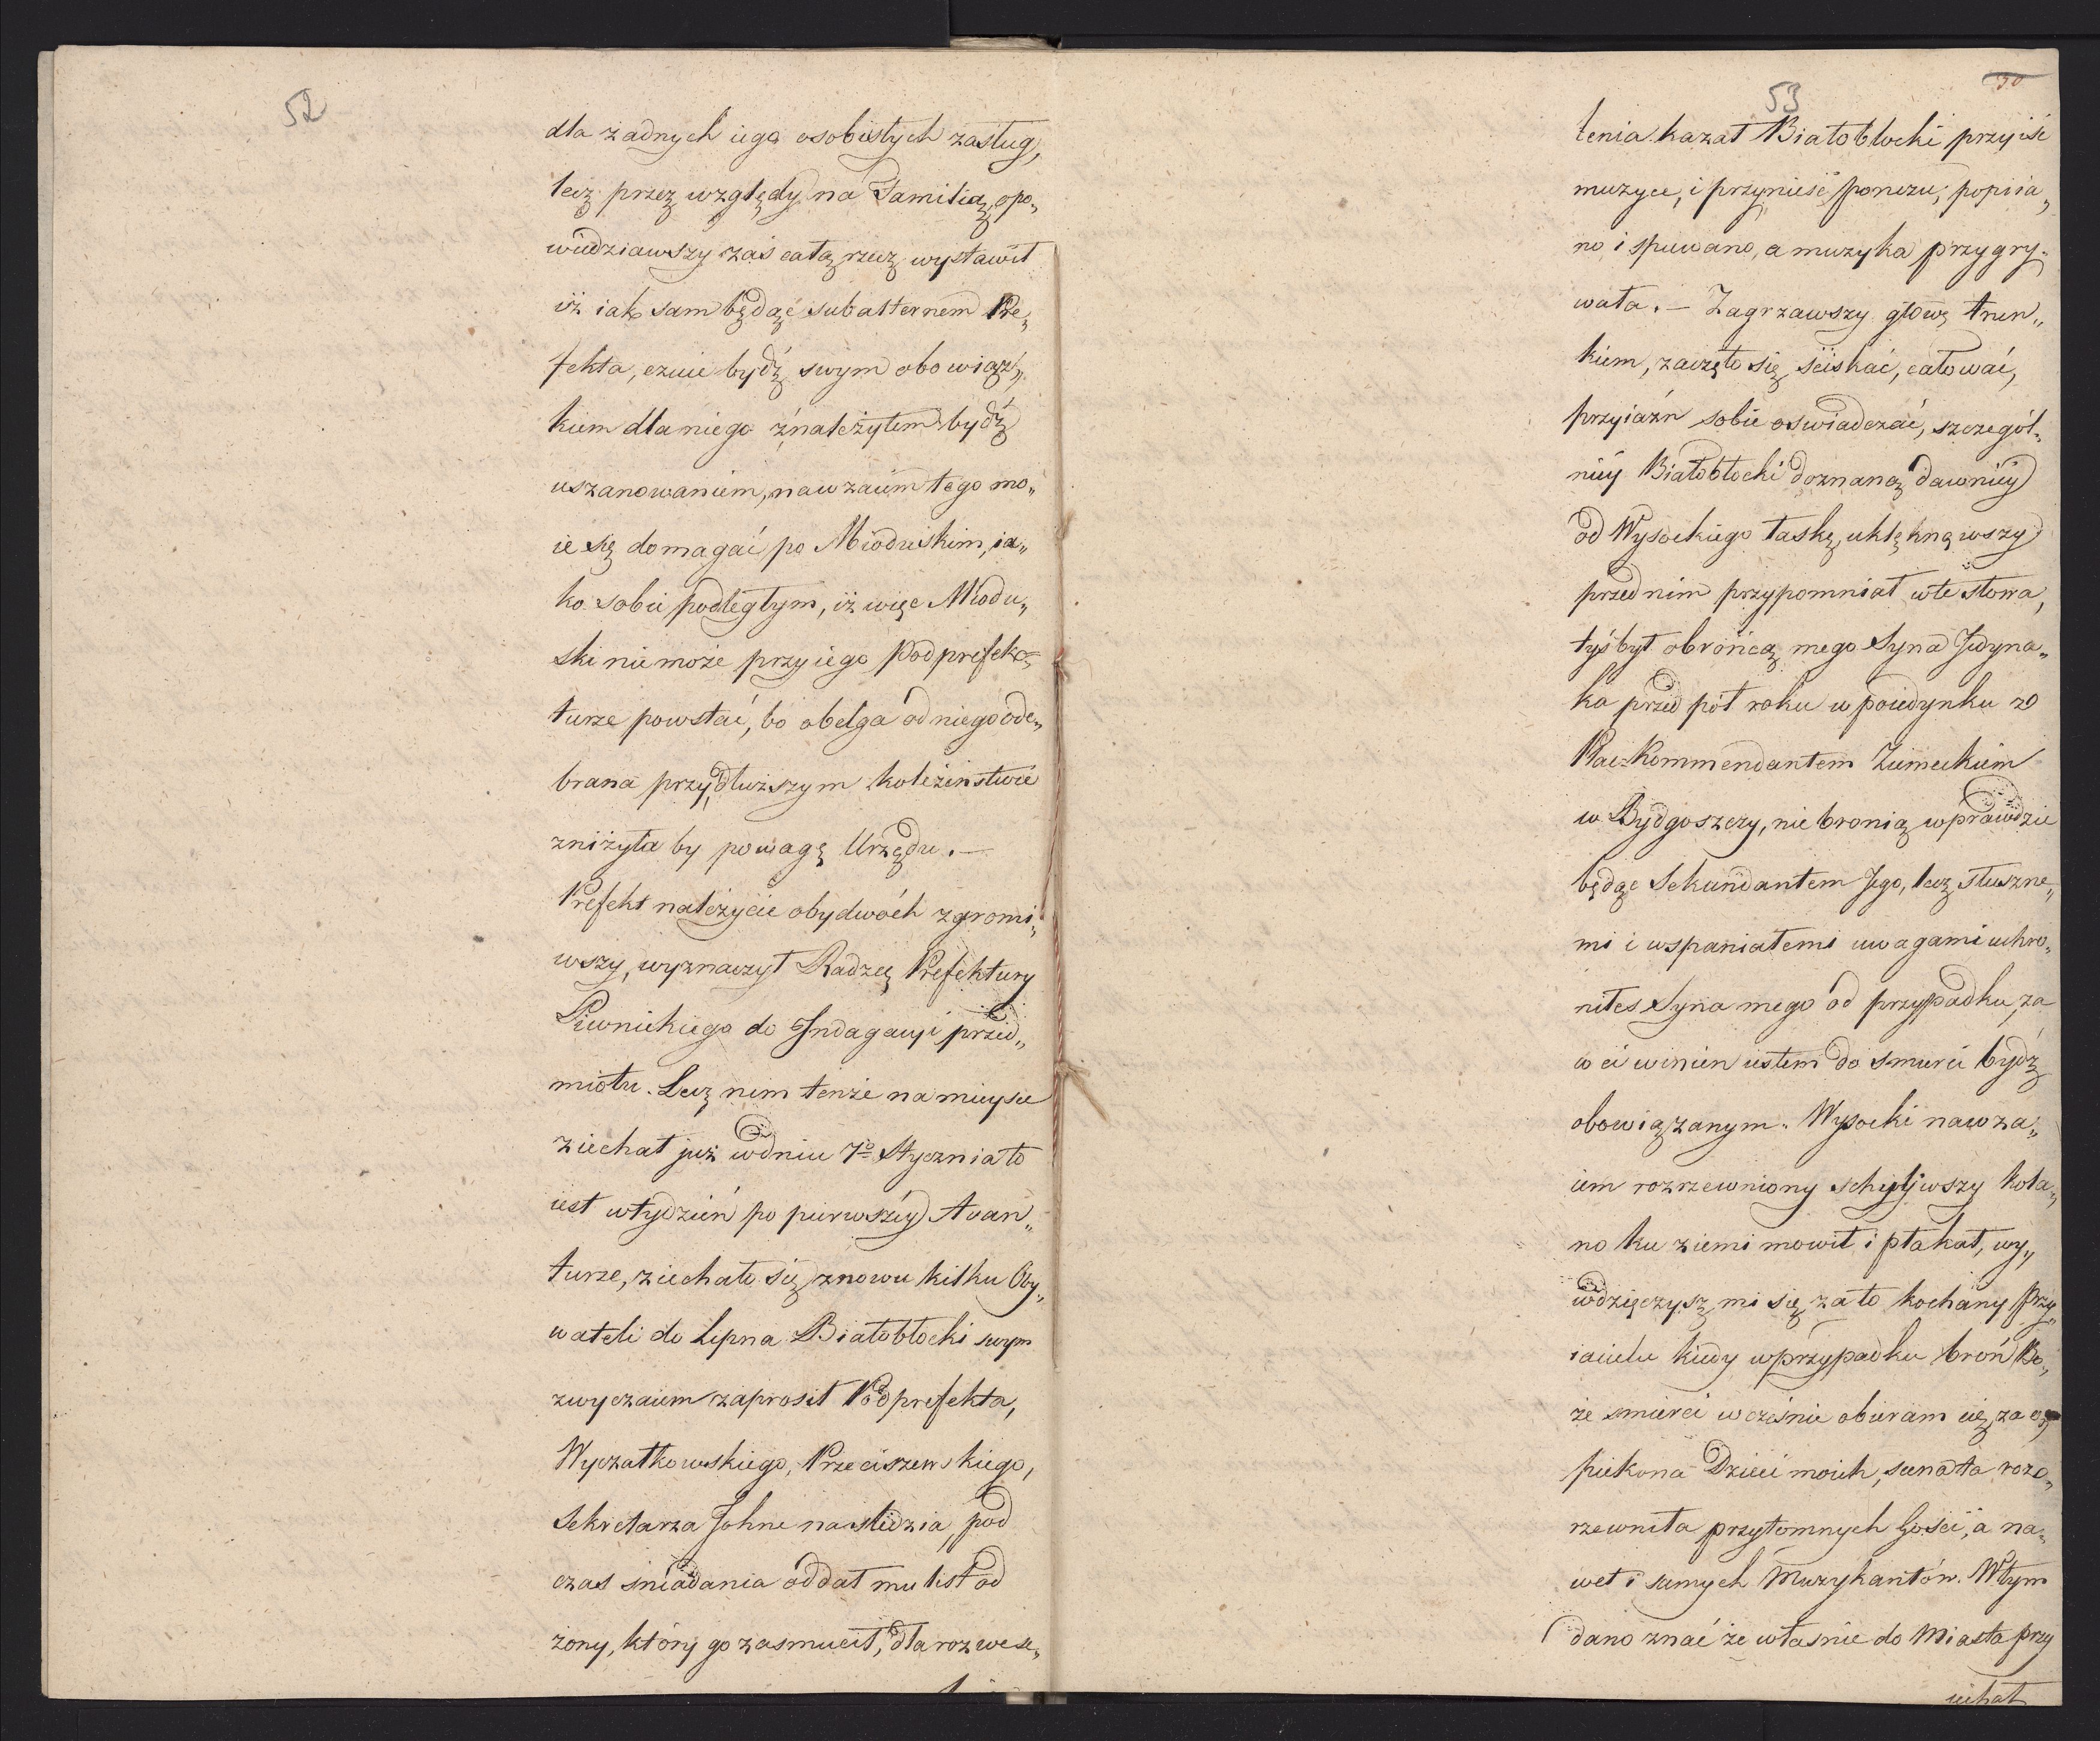 52
dla żadnych iego osobistych zasług,
lecz przez względy na Familią, opo„
wiedziawszy zaś całą rzecz wystawił
iż iak sam będąc subalternem Pre„
fekta, czuie bydź swym obowiąz„
kiem dla niego z należytem bydź
uszanowaniem, nawzaiem tego mo„
że się domagać po Mioduskim, ia„
ko sobie podległym, iż więc Miodu„
ski nie może przy iego Podprefek„
turze powstać, bo obelga od niego ode„
brana przy dłuższym koleżenstwie
zniżyła by powagę Urzędu. —
Prefekt należycie obydwóch zgromi„
wszy, wyznaczył Radzcę Prefektury
Piwnickiego do Indagacyi przed„
miotu. Lecz nim tenże na mieysce
ziechał już w dniu 7o Stycznia to
iest w tydzień po pierwszéy Avan„
turze, ziechało się znowu kilku Oby„
wateli do Lipna Białobłocki swym
zwyczaiem zaprosił Podprefekta,
Wyczałkowskiego, Przeciszewskiego,
Sekretarza Johne na sledzia, pod
czas sniadania oddał mu list od
żony, który go zasmucił, dla rozwese„
53
50
lenia kazał Białobłocki przyiść
muzyce, i przynieść ponczu, popiia„
no i spiewano, a muzyka przygry„
wała. — Zagrzawszy głowę trun„
kiem, zaczęto się sciskać, całować,
przyiaźń sobie oswiadczać, szczegól„
niéy Białobłocki doznaną dawniéy
od Wysockiego łaskę, uklęknąwszy
przed nim przypomniał w te słowa,
tyś był obrońcą mego Syna Jedyna„
ka przed pół roku w poiedynku z
Plac-Kommendantem Ziemeckim
w Bydgoszczy, nie bronią wprawdzie
będąc Sekundantem Jego, lecz słuszne„
mi i wspaniałemi uwagami uchro„
niłes Syna mego od przypadku, za
co ci winien iestem do smierci bydź
obowiązanym. Wysocki nawza„
iem rozrzewniony schyliwszy kola„
no ku ziemi mowił i płakał, wy„
wdzięczysz mi się za to kochany Przy„
iacielu kiedy w przypadku broń Bo„
że smierci wcześnie obieram cię za o„
piekuna Dzieci moich, scena ta rozo„
rzewniła przytomnych Gości, a na„
wet i samych Muzykantów. W tym
dano znać że własnie do Miasta przy
iechał